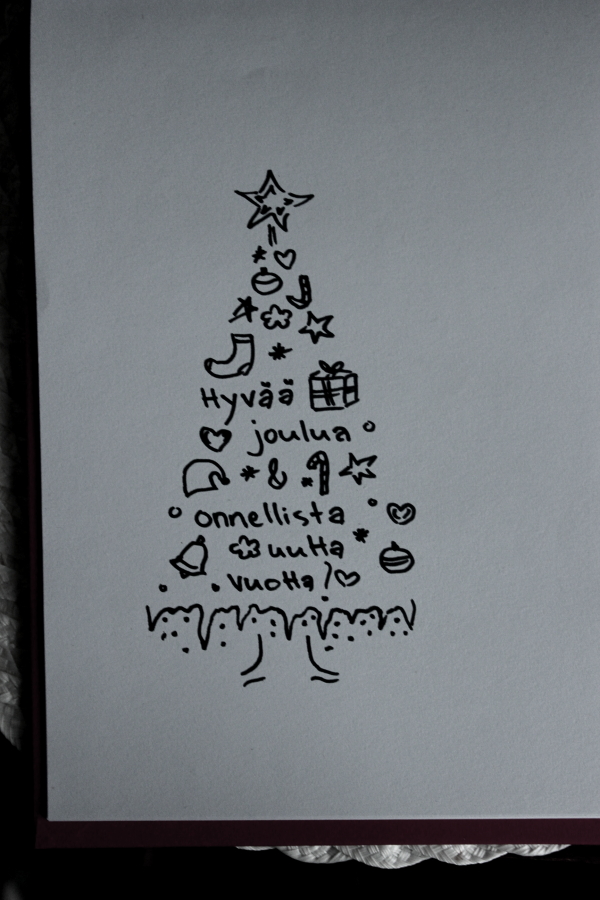 Hyvää
joulua
&
onnellista
uutta
vuotta!